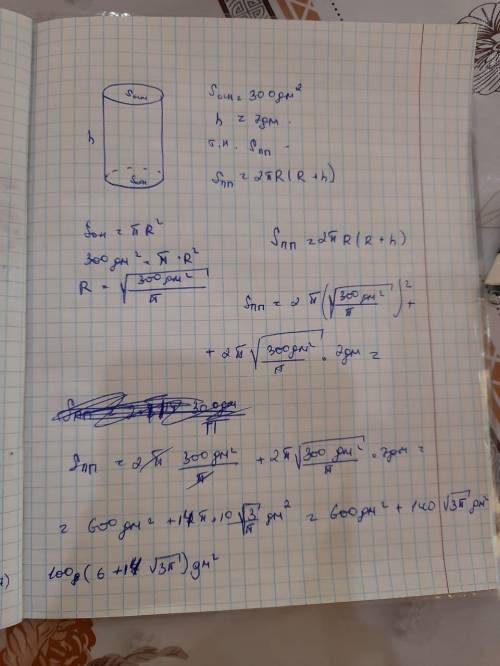 Sосн
h
Sосн
Sосн = 300 дм²
h = 7дм.
т.н. Sпп -
Sпп = 2πR(R + h)
Sосн = π R²
300 дм² = π · R²
R = √(300 дм² / π)
Sпп = 2π R (R + h)
Sпп = 2 π (√(300 дм² / π))² +
+ 2π √(300 дм² / π) · 7дм =
Sпп = 2π 300 дм² / π + 2π √(300 дм² / π) · 7дм =
= 600 дм² + 14π · 10 √(3 / π) дм² = 600 дм² + 140 √3π дм²
(6 + 14 √3π) дм²